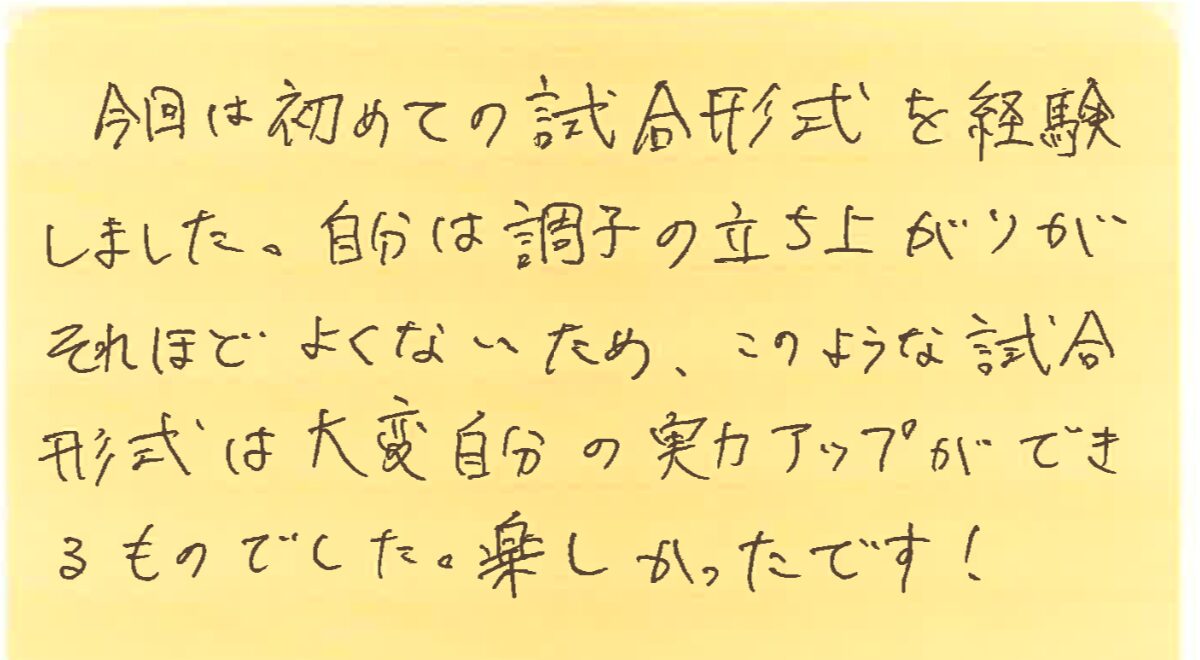 今回は初めての試合形式を経験
しました。自分は調子の立ち上がりが
それほどよくないため、このような試合
形式は大変自分の実力アップができ
るものでした。楽しかったです！